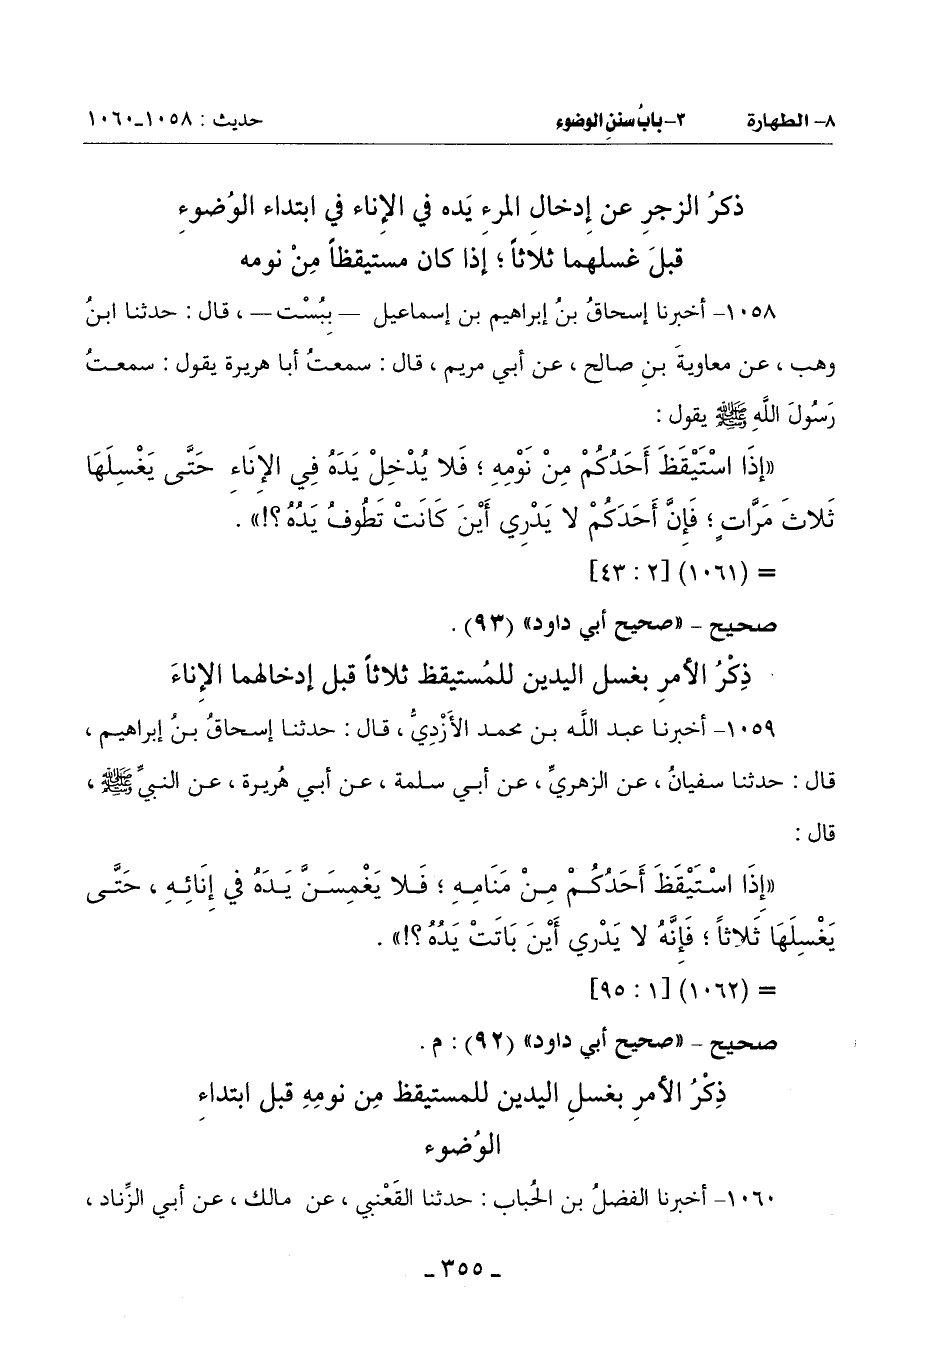 ٨- الطهارة ٣- بابُ سننِ الوضوء حديث : ١٠٥٨-١٠٦٠
ذكرُ الزجرِ عن إدخالِ المرءِ يَده في الإناء في ابتداء الوُضوءِ
قبلَ غسلهما ثلاثاً ؛ إذا كان مستيقظاً مِنْ نومه
١٠٥٨- أخبرنا إسحاقُ بنُ إبراهيم بن إسماعيل — بِبُسْت — ، قال : حدثنا ابنُ
وهب ، عن معاويةَ بنِ صالح ، عن أبي مريم ، قال : سمعتُ أبا هريرة يقول : سمعتُ
رَسُولَ اللَّهِ ﷺ يقول :
«إذَا اسْتَيْقَظَ أَحَدُكُمْ مِنْ نَوْمِهِ ؛ فَلا يُدْخِلْ يَدَهُ فِي الإِنَاءِ حَتَّى يَغْسِلَهَا
ثَلاثَ مَرَّاتٍ ؛ فَإِنَّ أَحَدَكُمْ لا يَدْرِي أَيْنَ كَانَتْ تَطُوفُ يَدُهُ؟!» .
= (١٠٦١) [٢ : ٤٣]
صحيح - «صحيح أبي داود» (٩٣) .
ذِكْرُ الأمرِ بغسلِ اليدين للمُستيقظ ثلاثاً قبل إدخالهما الإناءَ
١٠٥٩- أخبرنا عبد اللَّه بن محمد الأزْديُّ ، قال : حدثنا إسحاقُ بنُ إبراهيم ،
قال : حدثنا سفيانُ ، عن الزهريِّ ، عن أبي سلمة ، عن أبي هُريرة ، عن النبيِّ ﷺ ،
قال :
«إذَا اسْتَيْقَظَ أَحَدُكُمْ مِنْ مَنَامِهِ ؛ فَلا يَغْمِسَنَّ يَدَهُ في إنَائِهِ ، حَتَّى
يَغْسِلَهَا ثَلاثاً ؛ فَإِنَّهُ لا يَدْرِي أَيْنَ بَاتَتْ يَدُهُ؟!» .
= (١٠٦٢) [١ : ٩٥]
صحيح - «صحيح أبي داود» (٩٢) : م .
ذِكْرُ الأمرِ بغسلِ اليدين للمستيقظ مِن نومِهِ قبل ابتداءِ
الوُضوء
١٠٦٠- أخبرنا الفضلُ بن الحُباب : حدثنا القَعْنبي ، عن مالك ، عن أبي الزِّناد ،
- ٣٥٥ -